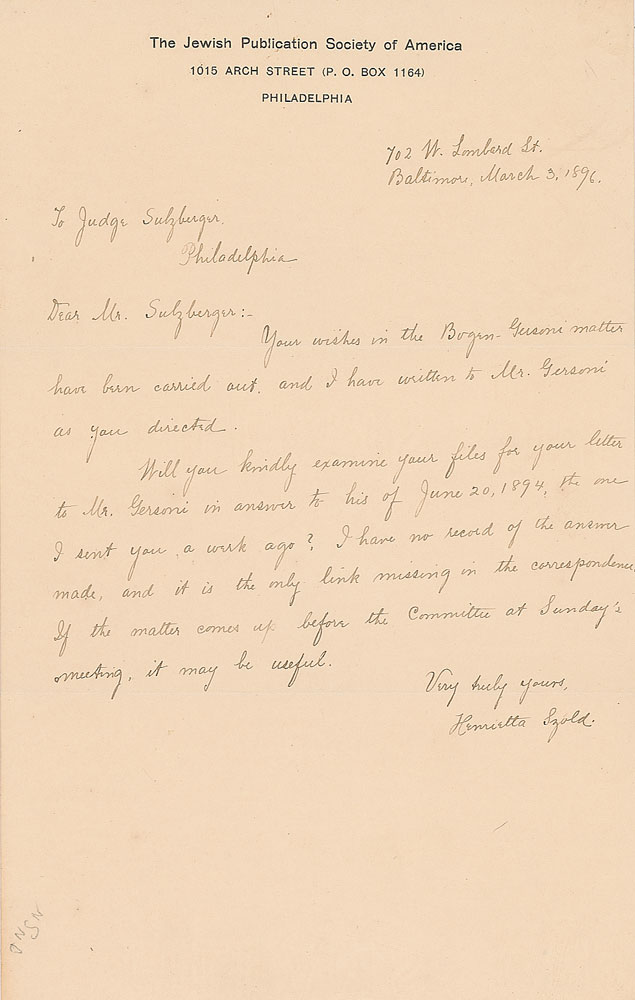 The Jewish Publication Society of America
1015 ARCH STREET (P. O. BOX 1164)
PHILADELPHIA
702 W. Lombard St.
Baltimore, March 3, 1896.
To Judge Sulzberger,
Philadelphia
Dear Mr. Sulzberger:-
Your wishes in the Bogen-Gersoni matter
have been carried out, and I have written to Mr. Gersoni
as you directed.
Will you kindly examine your files for your letter
to Mr. Gersoni in answer to his of June 20, 1894, the one
I sent you a week ago? I have no record of the answer
made, and it is the only link missing in the correspondence.
If the matter comes up before the Committee at Sunday's
meeting, it may be useful.
Very truly yours,
Henrietta Szold.